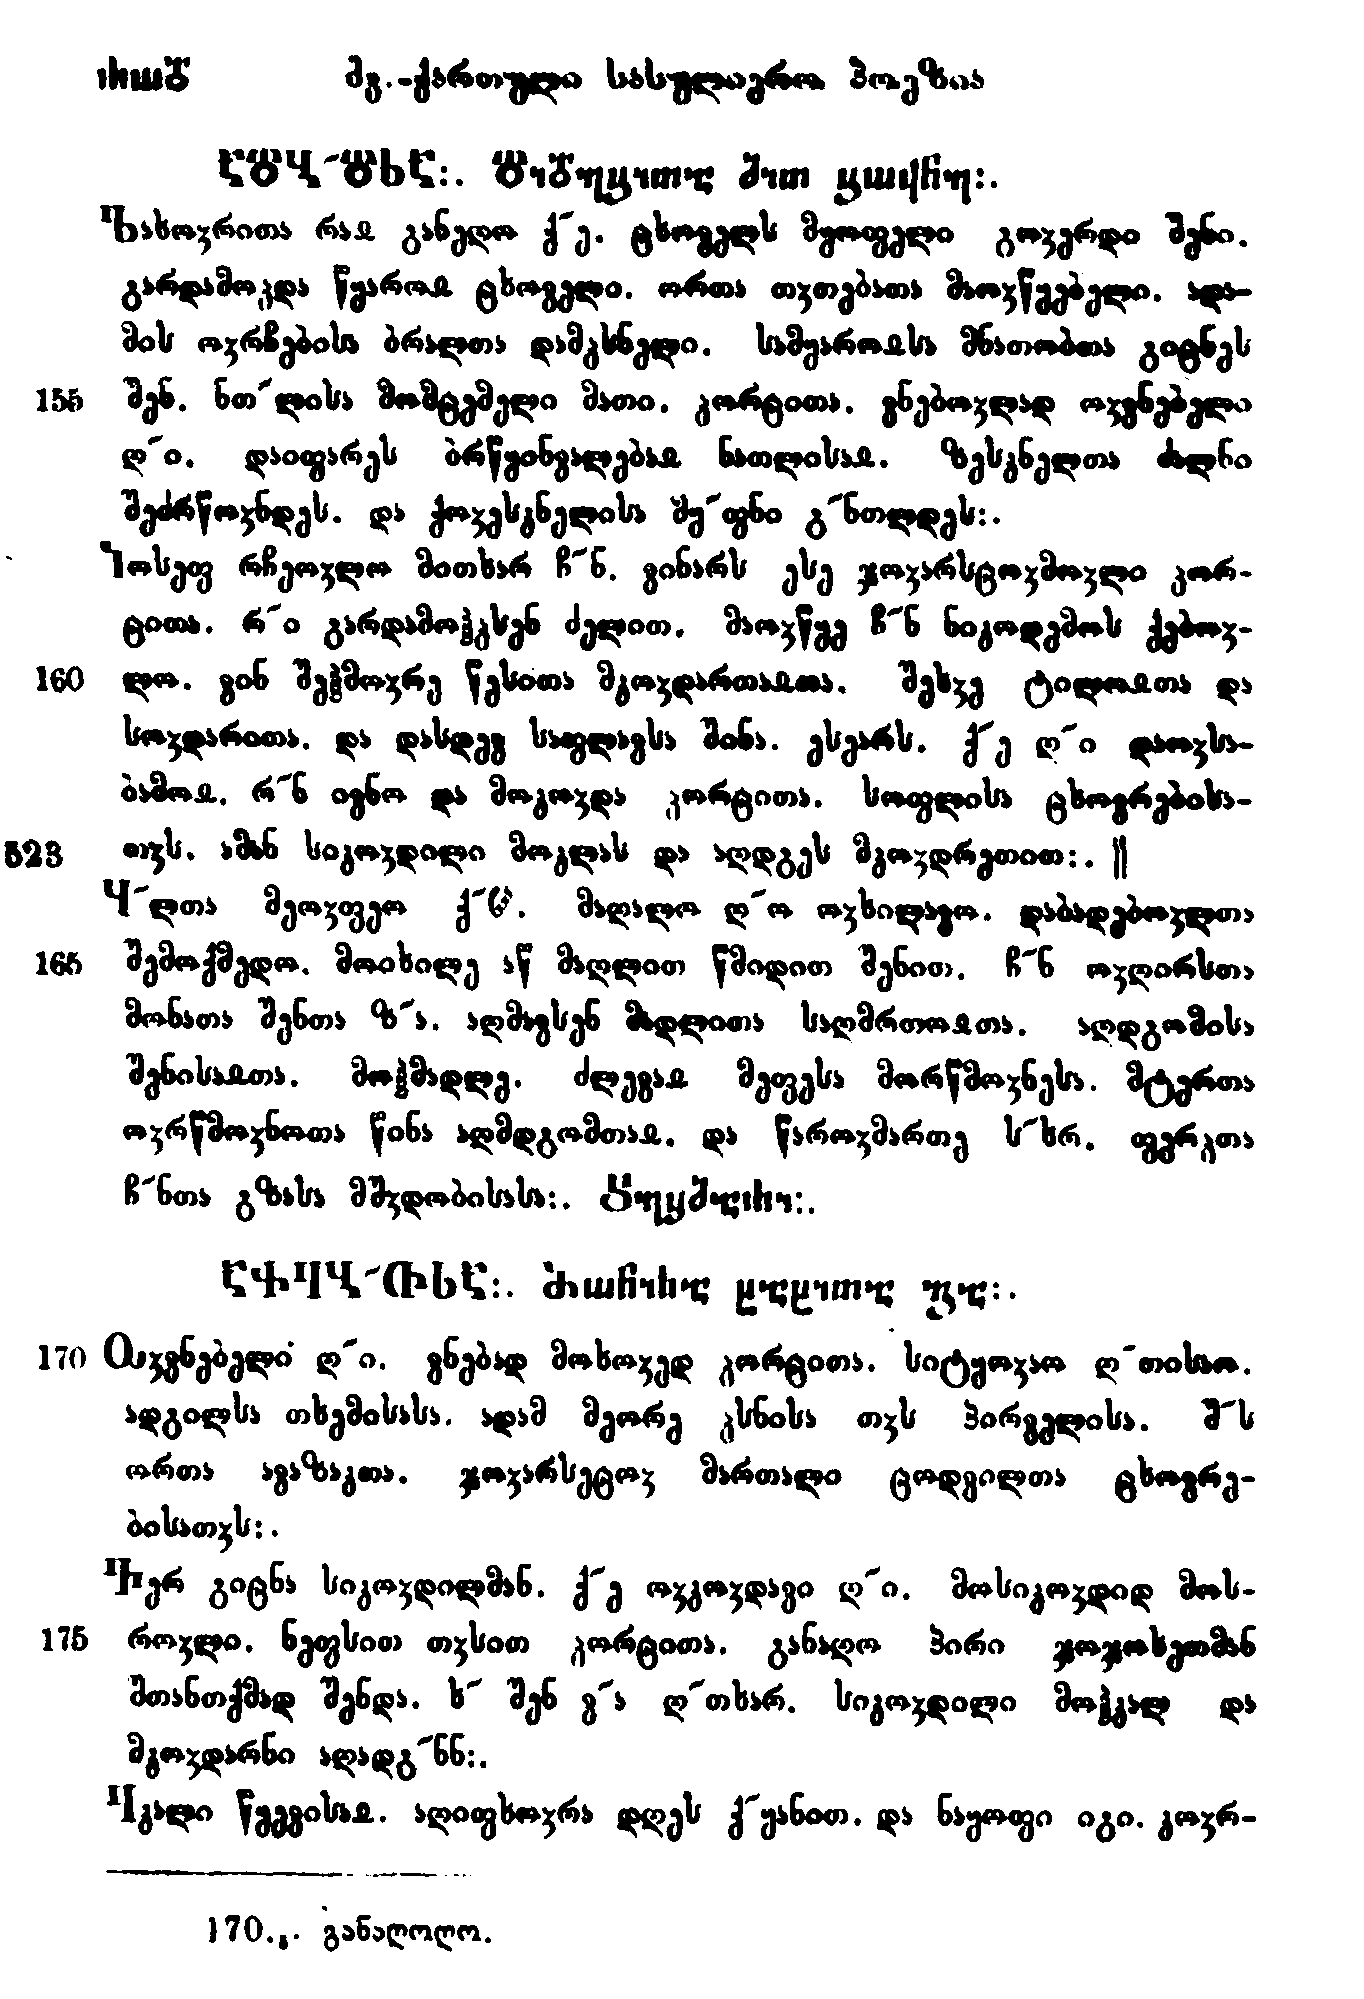 ძვ.-ქართული სასულიერო პოეზია
ახოჳრითა რაჲ განეღო ქ˜ე. ცხოველს მყოფელი გოჳერდი შენი.
გარდამოჴდა წყაროჲ ცხოველი. ორთა თჳთებათა მაოჳწყებელი. ადა-
მის ოჳრჩებისა ბრალთა დამჴსნელი. სამყაროჲსა მნათობთა გიცნეს
155 შენ. ნთ˜ლისა მომცემელი მათი. ჴორცითა. ვნებოჳლად ოჳვნებელი
ღ˜ი. დაიფარეს ბრწყინვალებაჲ ნათლისაჲ. ზესკნელთა ძალნი
შეძრწოჳნდეს. და ქოჳესკნელისა შუ˜ფნი გ˜ნთლდეს:.
იოსეფ რჩეოჳლო მითხარ ჩ˜ნ. ვინარს ესე ჯოჳარსცოჳმოჳლი ჴორ-
ცითა. რ˜ი გარდამოჰჴსენ ძელით. მაოჳწყე ჩ˜ნ ნიკოდემოს ქებოჳ-
160 ლო. ვინ შეჰმოჳრე წესითა მკოჳდართაჲთა. შესჳე ტილოჲთა და
სოჳდარითა. და დასდევ საფლავსა შინა. ესეარს. ქ˜ე ღ˜ი დაოჳსა-
ბამოჲ. რ˜ნ ივნო და მოკოჳდა ჴორცითა. სოფლისა ცხოვრებისა-
523 თჳს. ამან სიკოჳდილი მოკლას და აღდგეს მკოჳდრეთით:. ||
ყ˜ლთა მეოჳფეო ქ˜ . მაღალო ღ˜ო ოჳხილავო. დაბადებოჳლთა
165 შემოქმედო. მოიხილე აწ მაღლით წმიდით შენით. ჩ˜ნ ოჳღირსთა
მონათა შენთა ზ˜ა. აღმავსენ მადლითა საღმრთოჲთა. აღდგომისა
შენისაჲთა. მოჰმადლე. ძლევაჲ მეფესა მორწმოჳნესა. მტერთა
ოჳრწმოჳნოთა წინა აღმდგომთაჲ. და წაროჳმართე ს˜ხრ. ფერჴთა
ჩ˜ნთა გზასა მშჳდობისასა:.
170 ოჳვნებელი ღ˜ი. ვნებად მოხოჳედ ჴორცითა. სიტყოჳაო ღ˜თისაო.
ადგილსა თხემისასა. ადამ მეორე ჴსნისა თჳს პირველისა. შ˜ს
ორთა ავაზაკთა. ჯოჳარსეცოჳ მართალი ცოდვილთა ცხოვრე-
ბისათჳს:.
ვერ გიცნა სიკოჳდილმან. ქ˜ე ოჳკოჳდავი ღ˜ი. მოსიკოჳდიდ მოს-
175 როჳლი. ნეფსით თჳსით ჴორცითა. განაღო პირი ჯოჯოხეთმან
შთანთქმად შენდა. ხ˜ შენ ვ˜ა ღ˜თხარ. სიკოჳდილი მოჰკალ და
მკოჳდარნი აღადგ˜ნნ:.
კალი წყევისაჲ. აღიფხოჳრა დღეს ქ˜ყანით. და ნაყოფი იგი. კოჳრ-
170. განაღოღო.